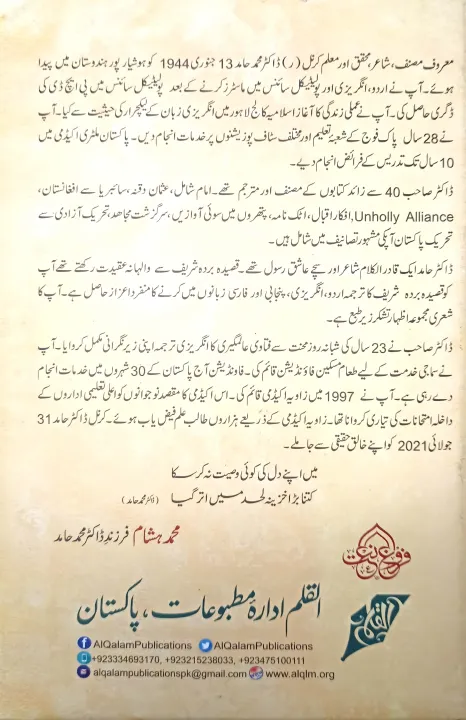 معروف مصنف، شاعر، محقق اور معلم کرنل (ر) ڈاکٹر محمد حامد 13 جنوری 1944 کو ہوشیار پور ہندوستان میں پیدا
ہوئے۔ آپ نے اردو، انگریزی اور پولیٹیکل سائنس میں ماسٹرز کرنے کے بعد پولیٹیکل سائنس میں پی ایچ ڈی کی
ڈگری حاصل کی۔ آپ نے عملی زندگی کا آغاز اسلامیہ کالج لاہور میں انگریزی زبان کے لیکچرار کی حیثیت سے کیا۔ آپ
نے 28 سال پاک فوج کے شعبۂ تعلیم اور مختلف سٹاف پوزیشنوں پر خدمات انجام دیں۔ پاکستان ملٹری اکیڈمی میں
10 سال تک تدریس کے فرائض انجام دیے۔
ڈاکٹر صاحب 40 سے زائد کتابوں کے مصنف اور مترجم تھے۔ امام شامل، عثمان دقنہ، سائبیریا سے افغانستان،
Unholy Alliance، افکار اقبال، اٹک نامہ، پتھروں میں سوئی آوازیں، سرگزشت مجاہد، تحریک آزادی سے
تحریک پاکستان آپکی مشہور تصانیف میں شامل ہیں۔
ڈاکٹر حامد ایک قادر الکلام شاعر اور سچے عاشق رسول تھے۔ قصیدہ بردہ شریف سے والہانہ عقیدت رکھتے تھے آپ
کو قصیدہ بردہ شریف کا ترجمہ اردو، انگریزی، پنجابی اور فارسی زبانوں میں کرنے کا منفرد اعزاز حاصل ہے۔ آپ کا
شعری مجموعہ اظہار تشکر زیر طبع ہے۔
ڈاکٹر صاحب نے 23 سال کی شبانہ روز محنت سے فتاویٰ عالمگیری کا انگریزی ترجمہ اپنی زیر نگرانی مکمل کروایا۔ آپ
نے سماجی خدمت کے لیے طعام مسکین فاؤنڈیشن قائم کی۔ فاؤنڈیشن آج پاکستان کے 30 شہروں میں خدمات انجام
دے رہی ہے۔ آپ نے 1997 میں زاویہ اکیڈمی قائم کی۔ اس اکیڈمی کا مقصد نوجوانوں کو اعلیٰ تعلیمی اداروں کے
داخلہ امتحانات کی تیاری کروانا تھا۔ زاویہ اکیڈمی کے ذریعے ہزاروں طالب علم فیض یاب ہوئے۔ کرنل ڈاکٹر حامد 31
جولائی 2021 کو اپنے خالق حقیقی سے جا ملے۔
میں اپنے دل کی کوئی وصیت نہ کر سکا
کتنا بڑا خزینہ لحد میں اتر گیا (ڈاکٹر محمد حامد)
محمد ہشام فرزند ڈاکٹر محمد حامد
فروغ نعت
القلم ادارۂ مطبوعات، پاکستان
القلم
AlQalamPublications AlQalamPublications
+923334693170, +923215238033, +923475100111
alqalampublicationspk@gmail.com www.alqlm.org